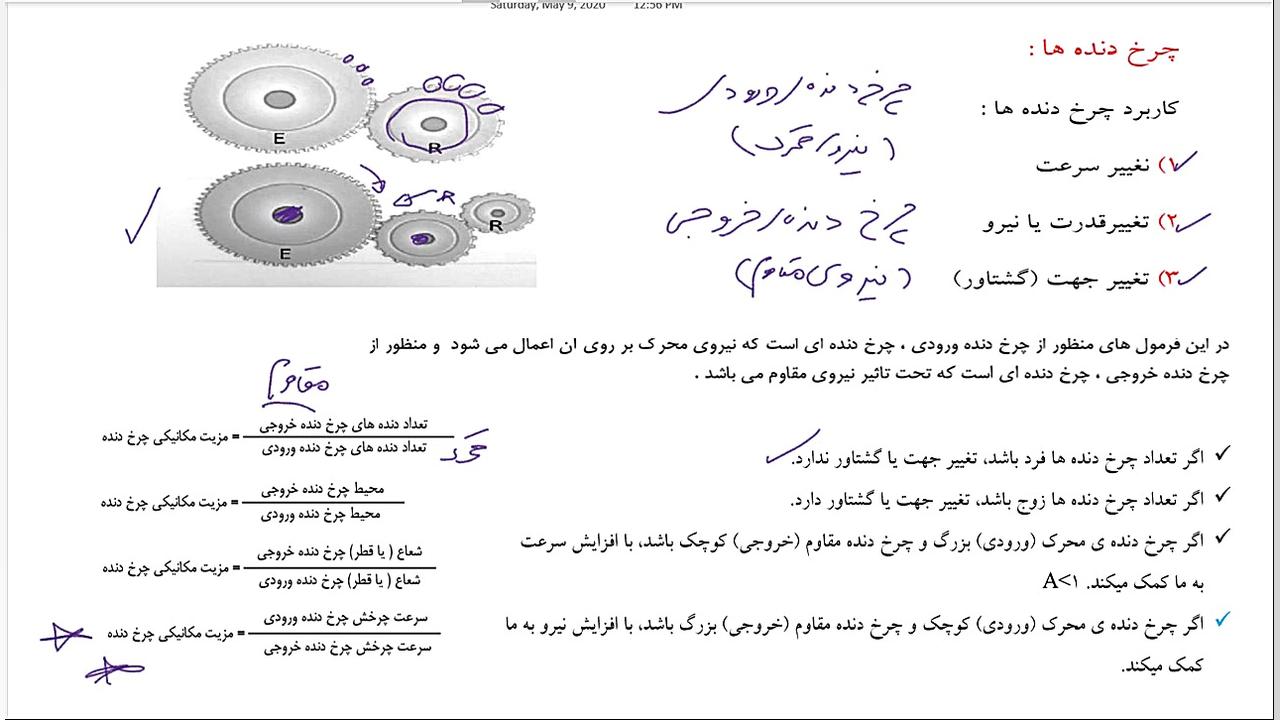 Saturday, May 9, 2020 12:56 PM
چرخ دنده ها :
کاربرد چرخ دنده ها :
۱) نغییر سرعت
۲) تغییرقدرت یا نیرو
۳) تغییر جهت (گشتاور)
چرخ دنده ورودی
(نیروی محرک)
چرخ دنده خروجی
(نیروی مقاوم)
E
R
E
R
در این فرمول های منظور از چرخ دنده ورودی ، چرخ دنده ای است که نیروی محرک بر روی ان اعمال می شود و منظور از
چرخ دنده خروجی ، چرخ دنده ای است که تحت تاثیر نیروی مقاوم می باشد .
اگر تعداد چرخ دنده ها فرد باشد، تغییر جهت یا گشتاور ندارد.
اگر تعداد چرخ دنده ها زوج باشد، تغییر جهت یا گشتاور دارد.
اگر چرخ دنده ی محرک (ورودی) بزرگ و چرخ دنده مقاوم (خروجی) کوچک باشد، با افزایش سرعت
به ما کمک میکند. A<۱
اگر چرخ دنده ی محرک (ورودی) کوچک و چرخ دنده مقاوم (خروجی) بزرگ باشد، با افزایش نیرو به ما
کمک میکند.
مقاوم
تعداد دنده های چرخ دنده خروجی
مزیت مکانیکی چرخ دنده =
تعداد دنده های چرخ دنده ورودی
محرک
محیط چرخ دنده خروجی
مزیت مکانیکی چرخ دنده =
محیط چرخ دنده ورودی
شعاع ( یا قطر) چرخ دنده خروجی
مزیت مکانیکی چرخ دنده =
شعاع ( یا قطر) چرخ دنده ورودی
سرعت چرخش چرخ دنده ورودی
مزیت مکانیکی چرخ دنده =
سرعت چرخش چرخ دنده خروجی